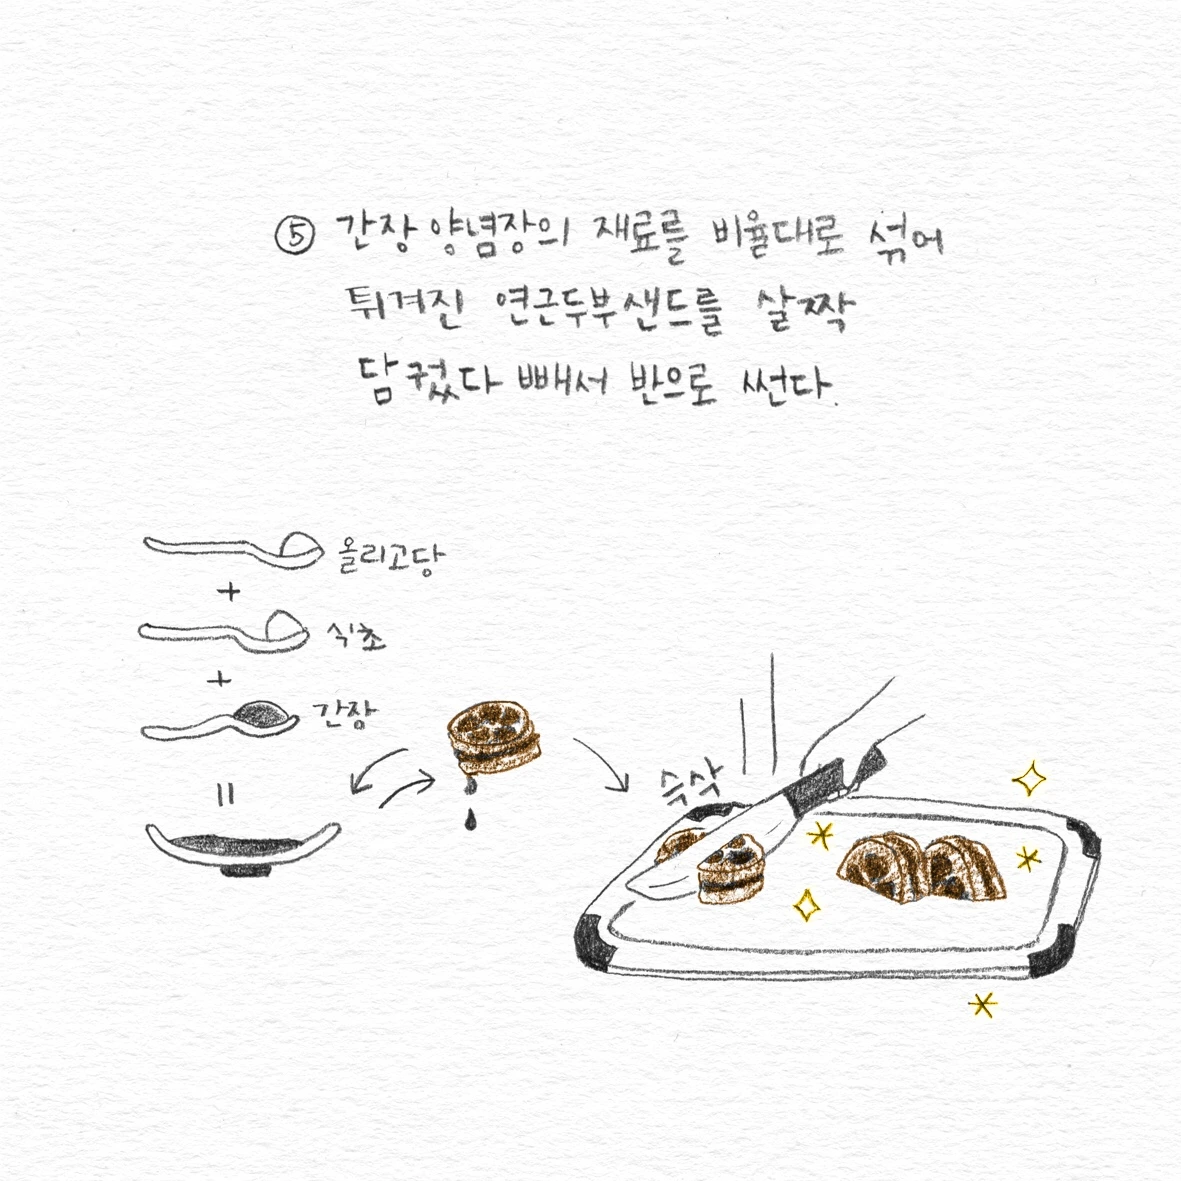 ⑤ 간장 양념장의 재료를 비율대로 섞어
튀겨진 연근두부샌드를 살짝
담궜다 빼서 반으로 썬다.
올리고당
+
식초
+
간장
=
슥삭